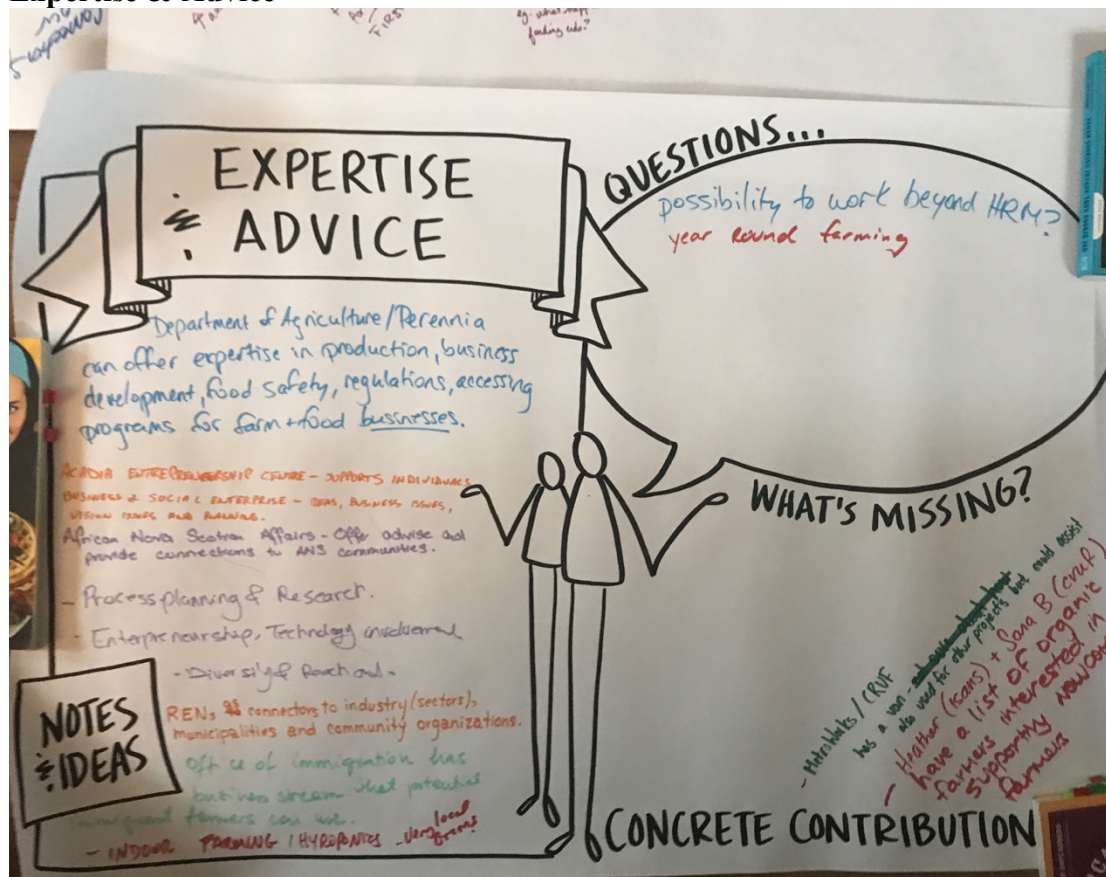 Expertise & Advice
FIRST
eg. what
funding
EXPERTISE
& ADVICE
Department of Agriculture/Perennia
can offer expertise in production, business
development, food safety, regulations, accessing
programs for farm + food businesses.
ACADIA ENTREPRENEURSHIP CENTRE - SUPPORTS INDIVIDUALS
BUSINESS & SOCIAL ENTERPRISE - IDEAS, BUSINESS ISSUES,
VISION ISSUES AND PLANNING.
African Nova Scotian Affairs - Offer advise and
provide connections to ANS communities.
- Process planning & Research.
- Enterpreneurship, Technology involvement
- Diversify &
RENs as connectors to industry (sectors),
municipalities and community organizations.
Office of immigration has
business stream that potential
immigrant farmers can use.
- INDOOR FARMING / HYROPONICS - very local
farms
NOTES
& IDEAS
QUESTIONS...
possibility to work beyond HRM?
year round farming
WHAT'S MISSING?
- MetroWorks / CRUF
has a van -
also used for other projects but could assist
- Heather (isans) + Sana B (CRUF)
have a list of organic
farmers interested in
supporting newcomer
farmers
CONCRETE CONTRIBUTION